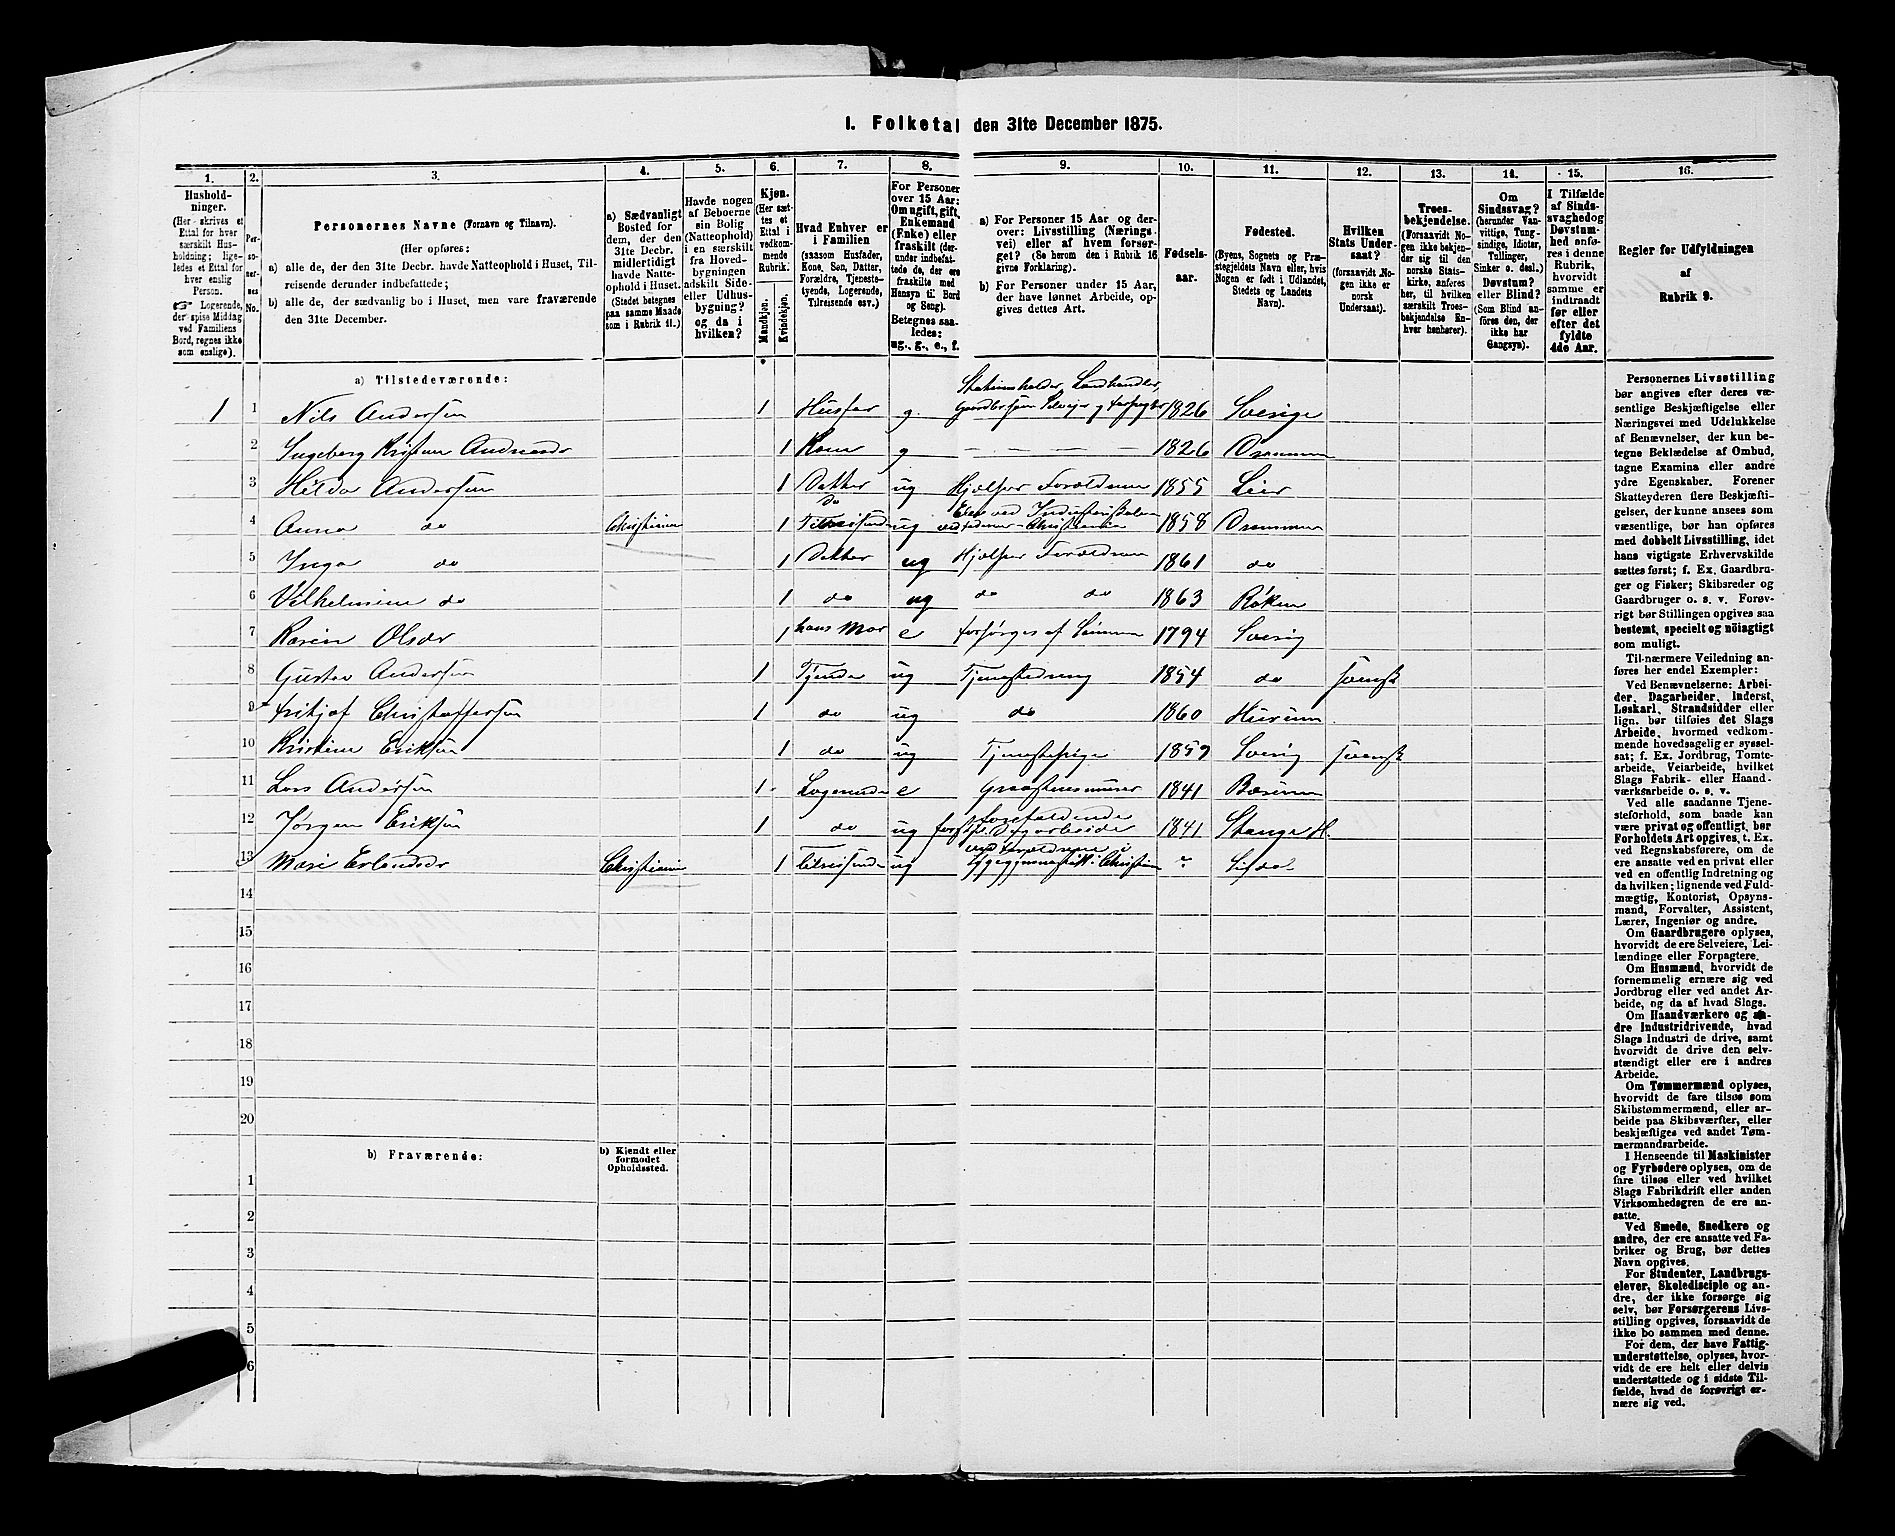 I. Folketal den 31te December 1875.
1. 2. 3. 4. 5. 6. 7. 8. 9. 10. 11. 12. 13. 14. 15. 16.
Husholdninger.
(Her skrives et
Ettal for hver
særskilt Husholdning; ligeledes et Ettal for
hver enslig
Person.
☞ Logerende,
der spise Middag
ved Familiens
Bord, regnes ikke
som enslige).
Personernes No.
Personernes Navne (Fornavn og Tilnavn).
(Her opføres:
a) alle de, der den 31te Decbr. havde Natteophold i Huset, Tilreisende derunder indbefattede;
b) alle de, der sædvanlig bo i Huset, men vare fraværende
den 31te December.
a) Sædvanligt
Bosted for
dem, der den
31te Decbr.
midlertidigt
havde Natteophold i Huset.
(Stedet betegnes
paa samme Maade
som i Rubrik 11.)
Havde nogen
af Beboerne
sin Bolig
(Natteophold)
i en særskilt
fra Hovedbygningen
adskilt Side-
eller Udhusbygning?
og da i
hvilken?
Kjøn.
(Her sættes et
Ettal i
vedkommende
Rubrik.
Mandkjøn.
Kvindekjøn.
Hvad Enhver er
i Familien
(saasom Husfader,
Kone, Søn, Datter,
Forældre, Tjenestetyende, Logerende,
Tilreisende osv.)
For Personer
over 15 Aar:
Om ugift, gift,
Enkemand
(Enke) eller
fraskilt (derunder indbefattede de, der ere
fraskilte med
Hensyn til Bord
og Seng).
Betegnes saaledes:
ug., g., e., f.
a) For Personer 15 Aar og derover: Livsstilling (Næringsvei) eller af hvem forsørget? (Se herom den i Rubrik 16
givne Forklaring).
b) For Personer under 15 Aar,
der have lønnet Arbeide, opgives dettes Art.
Fødselsaar.
Fødested.
(Byens, Sognets og Præstegjeldets Navn eller, hvis
Nogen er født i Udlandet,
Stedets og Landets
Navn).
Hvilken
Stats Undersaat?
(forsaavidt Nogen ikke er
norsk
Undersaat).
Troesbekjendelse.
(Forsaavidt Nogen ikke bekjender sig til den
norske Statskirke, anføres
her, til hvilken
særskilt Troesbekjendelse Enhver henhører).
Om
Sindssvag?
(herunder Vanvittige, Tungsindige, Idioter,
Tullinger,
Sinker o. desl.)
Døvstum?
eller Blind?
(Som Blind anføres den, der
ikke har
Gangsyn).
I Tilfælde
af Sindssvaghed og
Døvstumhed anføres i denne
Rubrik,
hvorvidt
samme er
indtraadt
før eller
efter det
fyldte
4de Aar.
Regler for Udfyldningen
af
Rubrik 9.
a) Tilstedeværende:
1 1 Nils Andersen 1 Husfar g. Stationsholder, Landhandler, Gaardbruger Selveier og 1826 Sverige
2 Ingeborg Andersen 1 Kone g — — — — 1826 Drammen
3 Hilda Andersen 1 Datter ug Hjælper Forældrene 1855 Lier
4 Anna do Christiania 1 do Tilreisende ug Christiania 1858 Drammen
5 Inga do 1 Datter ug Hjælper Forældrene 1861 do
6 Vilhelmine do 1 do ug do do 1863 Røken
7 Karen Olsdr 1 hans Mor e forsørges af Sønnen 1794 Sverig
8 Gustav Andersen 1 Tjener ug Tjenestedreng 1854 do svensk
9 Fritjof Christoffersen 1 do ug do 1860 Hurum
10 Kristine Eriksen 1 do ug Tjenestepige 1859 Sverig svensk
11 Lars Andersen 1 Logerende e 1841 Bærum
12 Jørgen Eriksen 1 do ug forefaldende Dagarbeide 1841 Stange H.
13 Mari Erlandsdr Christiania 1 tilreisende ug ved Forældrene i Christiania ?
14
15
16
17
18
19
20
b) Fraværende:
b) Kjendt eller
formodet
Opholdssted.
1
2
3
4
5
6
Personernes Livsstilling
bør angives efter deres væsentlige Beskjæftigelse eller
Næringsvei med Udelukkelse
af Benævnelser, der kun betegne Beklædelse af Ombud,
tagne Examina eller andre
ydre Egenskaber. Forener
Skatteyderen flere Beskjæftigelser, der kunne ansees som
væsentlige, bør han opføres
med dobbelt Livsstilling, idet
hans vigtigste Erhvervskilde
sættes først; f. Ex. Gaardbruger og Fisker; Skibsreder og
Gaardbruger o. s. v. Forøvrigt bør Stillingen opgives saa
bestemt, specielt og nöiagtigt
som muligt.
Til nærmere Veiledning anføres her endel Exempler:
Ved Benævnelserne: Arbeider, Dagarbeider, Inderst,
Løskarl, Strandsidder eller
lign. bør tilføies det Slags
Arbeide, hvormed vedkommende hovedsagelig er sysselsat; f. Ex. Jordbrug, Tomtearbeide, Veiarbeide, hvilket
Slags Fabrik- eller Haandværksarbeide o. s. v.
Ved alle saadanne Tjenesteforhold, som baade kan
være privat og offentligt, bør
Forholdets Art opgives, t. Ex.
ved Regnskabsførere, om de
ere ansatte ved en privat eller
ved en offentlig Indretning og
da hvilken; lignende ved Fuldmægtig, Kontorist, Opsynsmand, Forvalter, Assistent,
Lærer, Ingeniør og andre.
Om Gaardbrugere oplyses,
hvorvidt de ere Selveiere, Leilændinge eller Forpagtere.
Om Husmænd, hvorvidt de
fornemmelig ernære sig ved
Jordbrug eller ved andet Arbeide, og da af hvad Slags.
Om Haandværkere og andre Industridrivende, hvad
Slags Industri de drive, samt
hvorvidt de drive den selvstændigt eller ere i andres
Arbeide.
Om Tømmermænd oplyses,
hvorvidt de fare tilsøs som
Skibstømmermænd, eller arbeide paa Skibsværfter, eller
beskjæftiges ved andet Tømmermandsarbeide.
I Henseende til Maskinister
og Fyrbødere oplyses, om de
fare tilsøs eller ved hvilket
Slags Fabrikdrift eller anden
Virksomhedsgren de ere ansatte.
Ved Smede, Snedkere og
andre, der ere ansatte ved Fabriker og Brug, bør dettes
Navn opgives.
For Studenter, Landbrugselever, Skoledisciple og andre, der ikke forsørge sig
selv, bør Forsørgerens Livsstilling opgives, forsaavidt de
ikke bo sammen med denne.
For dem, der have Fattigunderstøttelse, oplyses, hvorvidt de ere helt eller delvis
understøttede og i sidste Tilfælde, hvad de forøvrigt ernære sig ved.